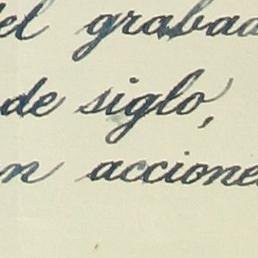 del grabad
de siglo,
n acciones